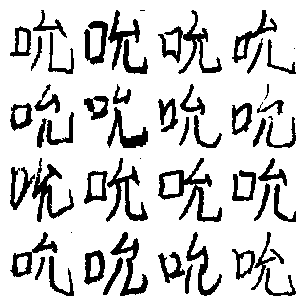 吮吮吮吮
吮吮吮吮
吮吮吮吮
吮吮吮吮